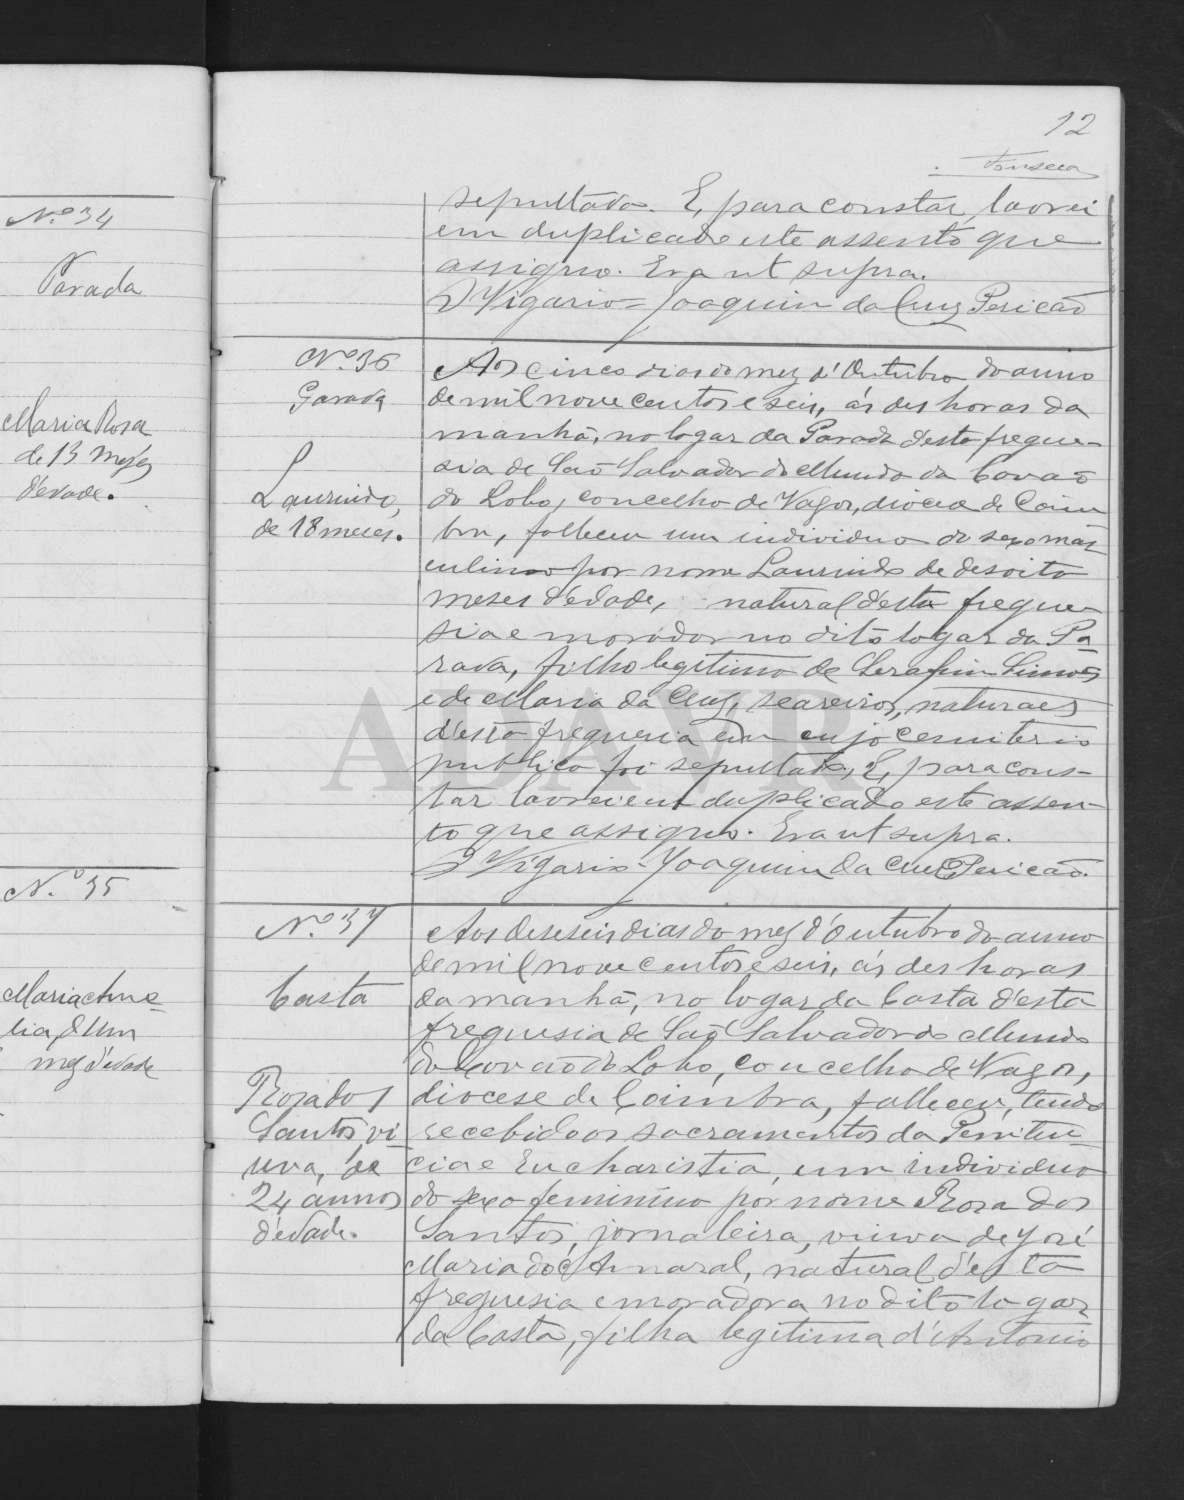 N.º 34
Parada
Maria Rosa
de 13 mezes
d'edade.
N.º 35
Maria Ame
lia, d'um
mez d'edade
12
Fonseca
sepultada. E, para constar, lavrei
em duplicado este assento que
assigno. Era ut supra.
O Vigario = Joaquim da Cruz Pericão
Nº 36
Parada
Laurindo,
de 18 meses.
Aos cinco dias do mez d'Outubro do anno
de mil nove centos e seis, ás des horas da
manhã, no logar da Parada d'esta fregue-
sia de São Salvador do Mundo da Covão
do Lobo, concelho de Vagos, diocese de Coim
bra, falleceu um individuo do sexo mas
culino por nome Laurindo de desoito
meses d'edade, natural d'esta fregue-
sia e morador no dito logar da Pa
rada, filho legitimo de Serafim Simões
e de Maria da Cruz, seareiros, naturaes
d'esta freguesia em cujo cemiterio
publico foi sepultado, E, para cons-
tar lavrei em duplicado este assen-
to que assigno. Era ut supra.
O Vigario - Joaquim da Cruz Pericão.
N.º 37
Costa
Rosa dos
Santos, vi
uva, de
24 annos
d'edade.
Aos deseseis dias do mez d'Outubro do anno
de mil nove centos e seis, ás des horas
da manhã, no logar da Costa d'esta
freguesia de São Salvador do Mundo
do Covão do Lobo, concelho de Vagos,
diocese de Coimbra, falleceu, tendo
recebido os sacramentos da Peniten-
cia e Eucharistia, um individuo
do sexo feminino por nome Rosa dos
Santos, jornaleira, viuva de José
Maria do Amaral, natural d'esta
freguesia e moradora no dito logar
da Costa, filha legitima d'Antonio
ADAVR